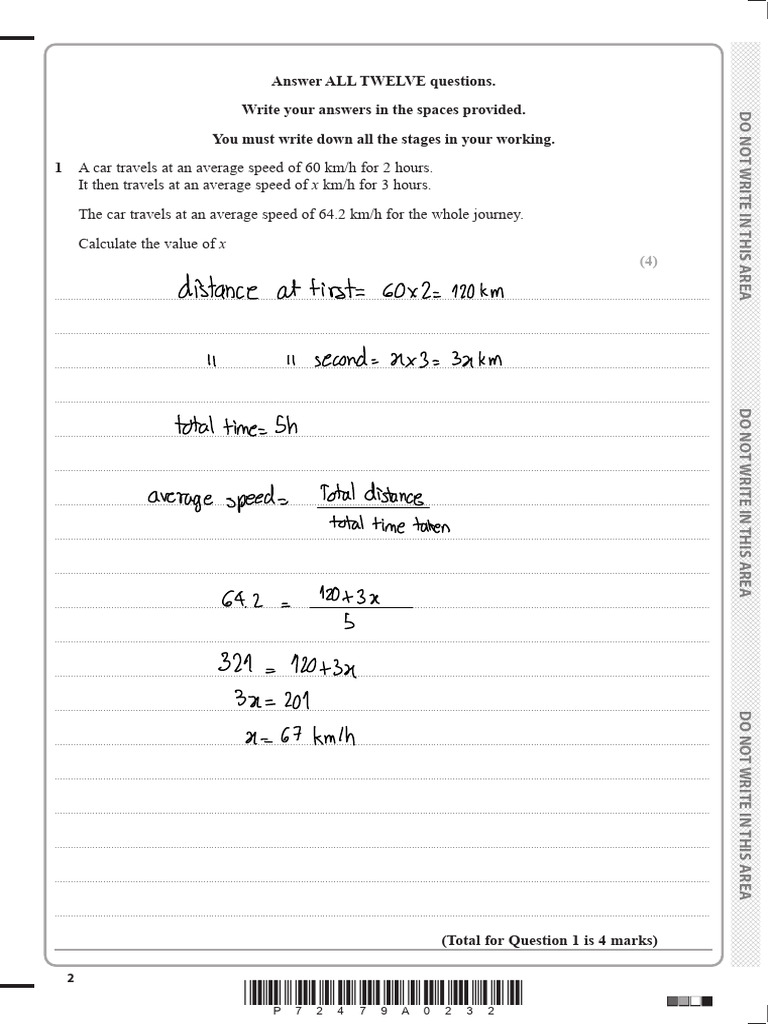 Answer ALL TWELVE questions.
Write your answers in the spaces provided.
You must write down all the stages in your working.
1 A car travels at an average speed of 60 km/h for 2 hours.
It then travels at an average speed of x km/h for 3 hours.
The car travels at an average speed of 64.2 km/h for the whole journey.
Calculate the value of x
(4)
distance at first = 60 x 2 = 120 km
" " second = x x 3 = 3x km
total time = 5h
average speed = Total distance
total time taken
64.2 = 120 + 3x
5
321 = 120 + 3x
3x = 201
x = 67 km/h
(Total for Question 1 is 4 marks)
2
P72479A0232
DO NOT WRITE IN THIS AREA
DO NOT WRITE IN THIS AREA
DO NOT WRITE IN THIS AREA